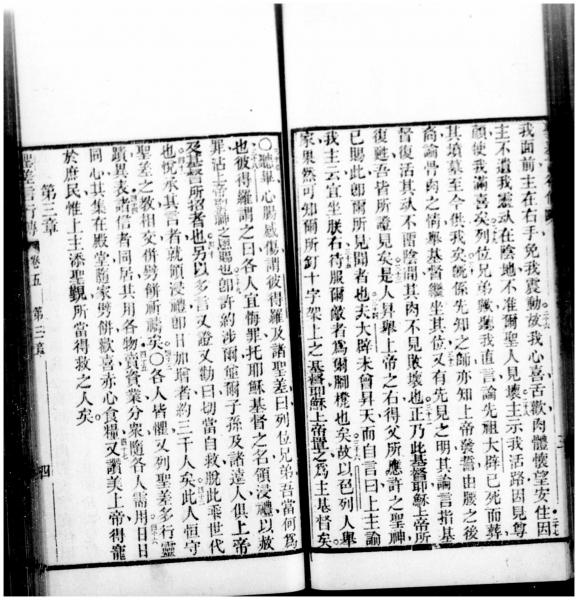 我面前主在右手免我震動故我心喜舌歡肉體懷望安住因
主不遺我靈欤在陰地不准爾聖人見壞主示我活路因見尊
顏使我滿喜矣列位兄弟儆聽我直言論先祖大辟已死而葬
其墳墓至今供我矣旣係先知之師亦知上帝發誓由厥之後
尚論骨肉之情舉基督繼坐其位又有先見之明其論言指基
督復活其欤不畱陰間其肉不見敗壞也正乃此基督耶穌上帝所
復甦吾皆所證見矣是人昇舉上帝之右得父所應許之聖神
已賜此卽爾所見聞者也夫大辟未曾昇天而自言曰上主諭
我主云宜坐朕右待服爾敵者爲爾腳櫈也矣故以色列人舉
家果然可知爾所釘十字架上之基督耶穌上帝置之爲主基督矣
〇聽畢心腸感傷謂彼得羅及諸聖差曰列位兄弟吾當何爲
也彼得羅謂之曰各人宜悔罪托耶穌基督之名領浸禮以赦
罪沾上帝聖神之恩賜也卽許約涉爾等爾子孫及諸遠人俱上帝
及基督所招者也另以多言又證又勸曰切當自救脫此乖世代
也悅承其言者就領浸禮卽日加增者約三千人矣此人恒守
聖差之敎相交併劈餅祈禱矣〇各人皆懼又列聖差多行靈
蹟異表諸信者同居共用各物賣資業分衆隨各人需用日日
同心共集在殿堂隨家劈餅歡喜赤心食糧又讚美上帝得寵
於庶民惟上主添聖觀所當得救之人矣
第三章
卷五 第三章 四